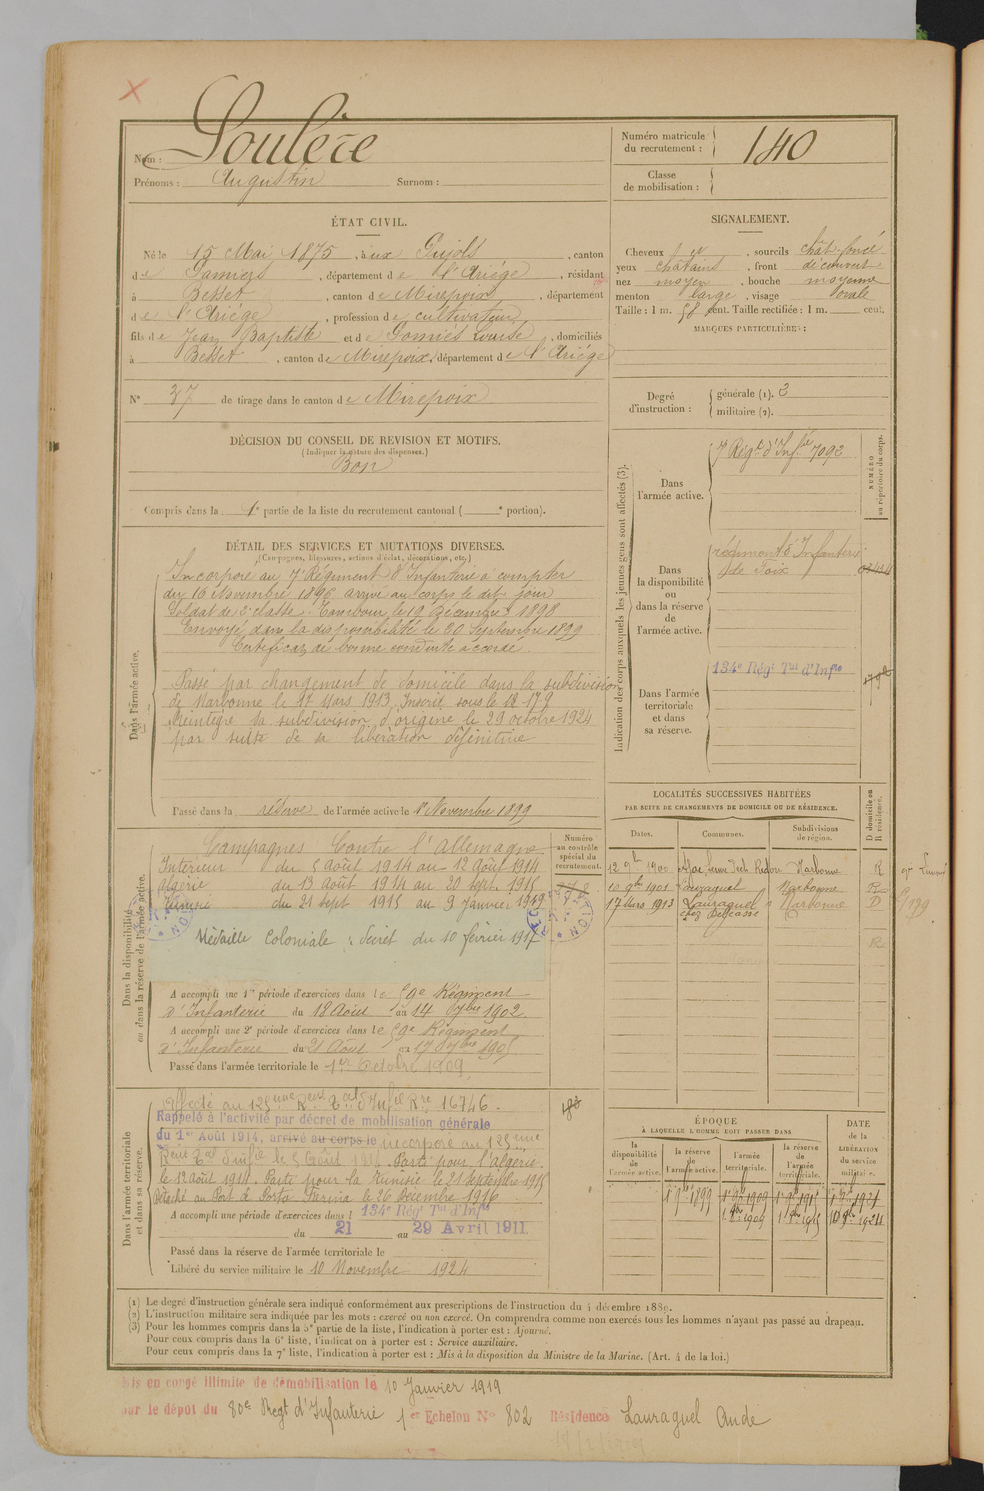 Nom : Soulère
Prénoms : Augustin Surnom :
Numéro matricule du recrutement : 140
Classe de mobilisation :
ÉTAT CIVIL.
Né le 15 Mai 1875, à aux Pujols, canton
de Pamiers, département de l'Ariège, résidant
à Besset, canton de Mirepoix, département
de l'Ariège, profession de cultivateur
fils de Jean Baptiste et de Gomiés Louise, domiciliés
à Besset, canton de Mirepoix, département de l'Ariège
N° 37 de tirage dans le canton de Mirepoix
SIGNALEMENT.
Cheveux et, sourcils chât. foncé
yeux châtains, front découvert
nez moyen, bouche moyenne
menton large, visage ovale
Taille : 1 m. 58 cent. Taille rectifiée : 1 m. cent.
MARQUES PARTICULIÈRES :
Degré d'instruction : générale (1). 3
militaire (2).
DÉCISION DU CONSEIL DE REVISION ET MOTIFS.
(Indiquer la nature des dispenses.)
Bon
Compris dans la 1e partie de la liste du recrutement cantonal ( e portion).
DÉTAIL DES SERVICES ET MUTATIONS DIVERSES.
(Campagnes, blessures, actions d'éclat, décorations, etc.)
Dans l'armée active.
Incorporé au 7e Régiment d'Infanterie à compter
du 16 Novembre 1896 arrivé au corps le dit jour
Soldat de 2e classe. Tambour le 19 Décembre 1898
Envoyé dans la disponibilité le 20 Septembre 1899
Certificat de bonne conduite accordé.
Passé par changement de domicile dans la subdivision
de Narbonne le 17 Mars 1913 Inscrit sous le
Réintégré la subdivision d'origine le 29 octobre 1924
par suite de sa libération définitive
Passé dans la réserve de l'armée active le 1er Novembre 1899
Indication des corps auxquels les jeunes gens sont affectés (3).
NUMÉRO au répertoire du corps.
Dans l'armée active.
7e Régt d'Infie 7092
Dans la disponibilité ou dans la réserve de l'armée active.
régiment d'Infanterie
de Foix
Dans l'armée territoriale et dans sa réserve.
134e Régt Tal d'Infie
LOCALITÉS SUCCESSIVES HABITÉES
PAR SUITE DE CHANGEMENTS DE DOMICILE OU DE RÉSIDENCE.
D domicile ou R résidence.
Dates. Communes. Subdivisions de région.
12 9bre 1900 Narbonne R
10 9bre 1901 Lauraguel Narbonne R
17 Mars 1913 Lauraguel Narbonne D
chez Delcasse
R
Dans la disponibilité ou dans la réserve de l'armée active.
Numéro au contrôle spécial du recrutement.
Campagnes Contre l'Allemagne
Intérieur du 5 août 1914 au 12 août 1914
Algérie du 13 août 1914 au 20 sept. 1915
Tunisie du 21 sept 1915 au 9 janvier 1919
Médaille Coloniale : Décret du 10 février 1917
A accompli une 1re période d'exercices dans le 59e Régiment
d'Infanterie du 18 Août au 14 7bre 1902
A accompli une 2e période d'exercices dans le 59e Régiment
d'Infanterie du 21 Août au 17 7bre 1905
Passé dans l'armée territoriale le 1er Octobre 1909
Dans l'armée territoriale et dans sa réserve.
Affecté au 125ème Régt Tal d'Infie Rre 16746.
Rappelé à l'activité par décret de mobilisation générale
du 1er Août 1914, arrivé au corps le incorporé au 125ème
Régt Tal d'Infie le 5 Août 1914. Parti pour l'Algérie
le 12 août 1914. Parti pour la Tunisie le 21 septembre 1915
Détaché au Port à Porto Farina le 26 Décembre 1916
A accompli une période d'exercices dans l 134e Régt Tal d'Infie
du 21 au 29 Avril 1911
Passé dans la réserve de l'armée territoriale le
Libéré du service militaire le 10 Novembre 1924
ÉPOQUE
À LAQUELLE L'HOMME DOIT PASSER DANS
DATE de la LIBÉRATION du service militaire.
la disponibilité de l'armée active. la réserve de l'armée active. l'armée territoriale. la réserve de l'armée territoriale.
1 9bre 1899 1 9bre 1909 1 9bre 1915 1 9bre 1921
1 8bre 1909 1 8bre 1915 10 9bre 1924
(1) Le degré d'instruction générale sera indiqué conformément aux prescriptions de l'instruction du 4 décembre 1889.
(2) L'instruction militaire sera indiquée par les mots : exercé ou non exercé. On comprendra comme non exercés tous les hommes n'ayant pas passé au drapeau.
(3) Pour les hommes compris dans la 5e partie de la liste, l'indication à porter est : Ajourné.
Pour ceux compris dans la 6e liste, l'indication à porter est : Service auxiliaire.
Pour ceux compris dans la 7e liste, l'indication à porter est : Mis à la disposition du Ministre de la Marine. (Art. 4 de la loi.)
Mis en congé illimité de démobilisation le 10 Janvier 1919
par le dépôt du 80e Regt d'Infanterie 1er Échelon N° 802 Résidence Lauraguel Aude